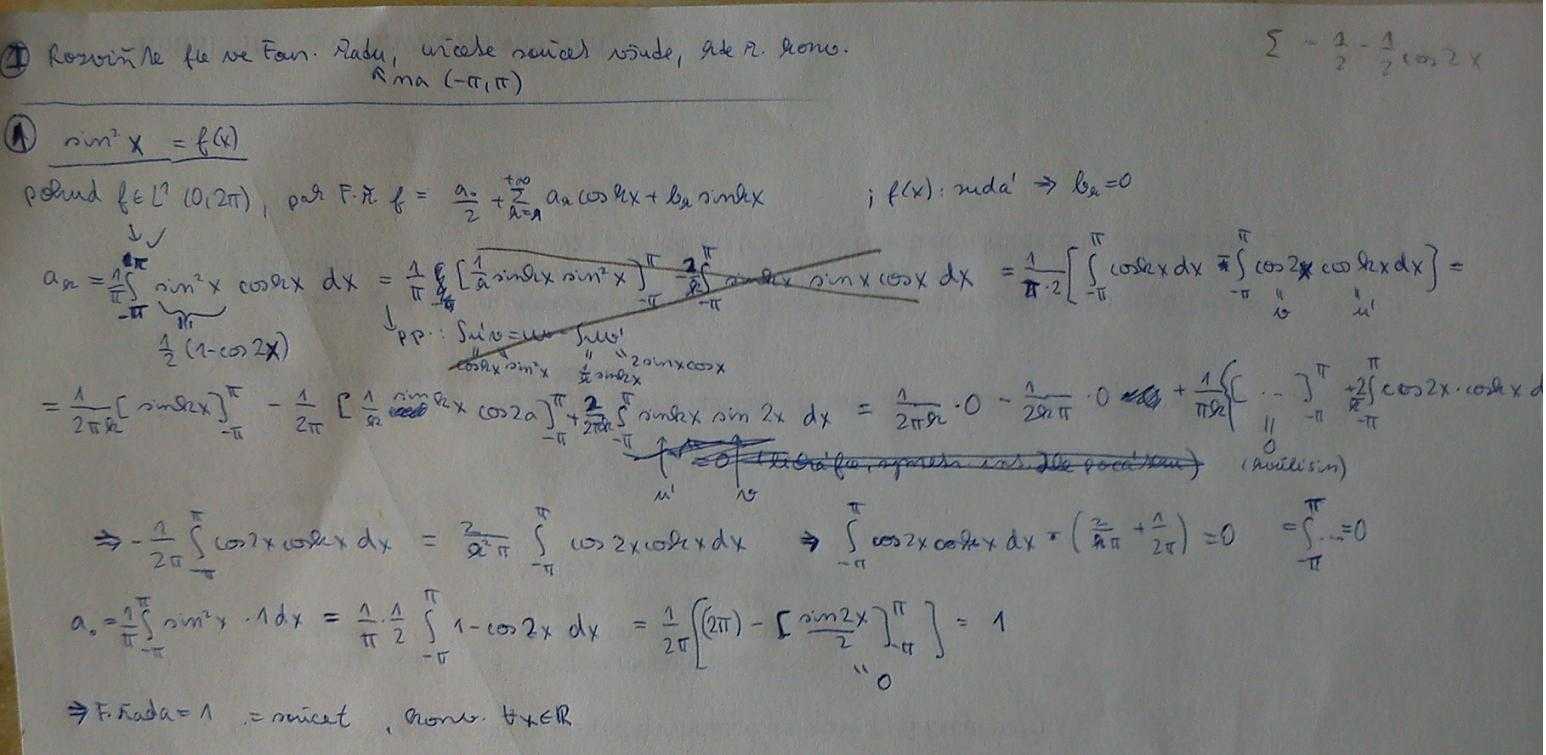 Rozviňte fci ve Four. řadu, určete součet všude, kde ř. konv.
na (-π, π)
Σ - 1/2 - 1/2 cos 2x
① sin² x = f(x)
pokud f ∈ L¹ (0, 2π), pak F.Ř. f = a₀/2 + Σ_{k=1}^{+∞} aₖ cos kx + bₖ sin kx ; f(x): sudá ⇒ bₖ = 0
aₖ = 1/π ∫_{-π}^{π} sin² x cos kx dx = 1/π [1/k sin kx sin² x]_{-π}^{π} - 2/k ∫_{-π}^{π} sin kx sin x cos x dx = 1/(π·2) [∫_{-π}^{π} cos kx dx - ∫_{-π}^{π} cos 2x cos kx dx] =
v u'
1/2 (1 - cos 2x)
p.p.: ∫u'v = uv - ∫uv'
cos kx sin² x 1/k sin kx 2 sin x cos x
= 1/(2πk) [sin kx]_{-π}^{π} - 1/(2π) [1/k sin kx cos 2a]_{-π}^{π} + 2/(2πk) ∫_{-π}^{π} sin kx sin 2x dx = 1/(2πk) · 0 - 1/(2kπ) · 0 + 1/(πk) {[ ... ]_{-π}^{π} + 2/k ∫_{-π}^{π} cos 2x · cos kx d
0
(kvůli sin)
u' v
⇒ - 1/(2π) ∫_{-π}^{π} cos 2x cos kx dx = 2/(k²π) ∫_{-π}^{π} cos 2x cos kx dx ⇒ ∫_{-π}^{π} cos 2x cos kx dx · (2/(kπ) + 1/(2π)) = 0 = ∫_{-π}^{π} ... = 0
a₀ = 1/π ∫_{-π}^{π} sin² x · 1 dx = 1/π · 1/2 ∫_{-π}^{π} 1 - cos 2x dx = 1/(2π) [(2π) - [sin 2x / 2]_{-π}^{π}] = 1
0
⇒ F. Řada = 1 = součet, konv. ∀x∈ℝ